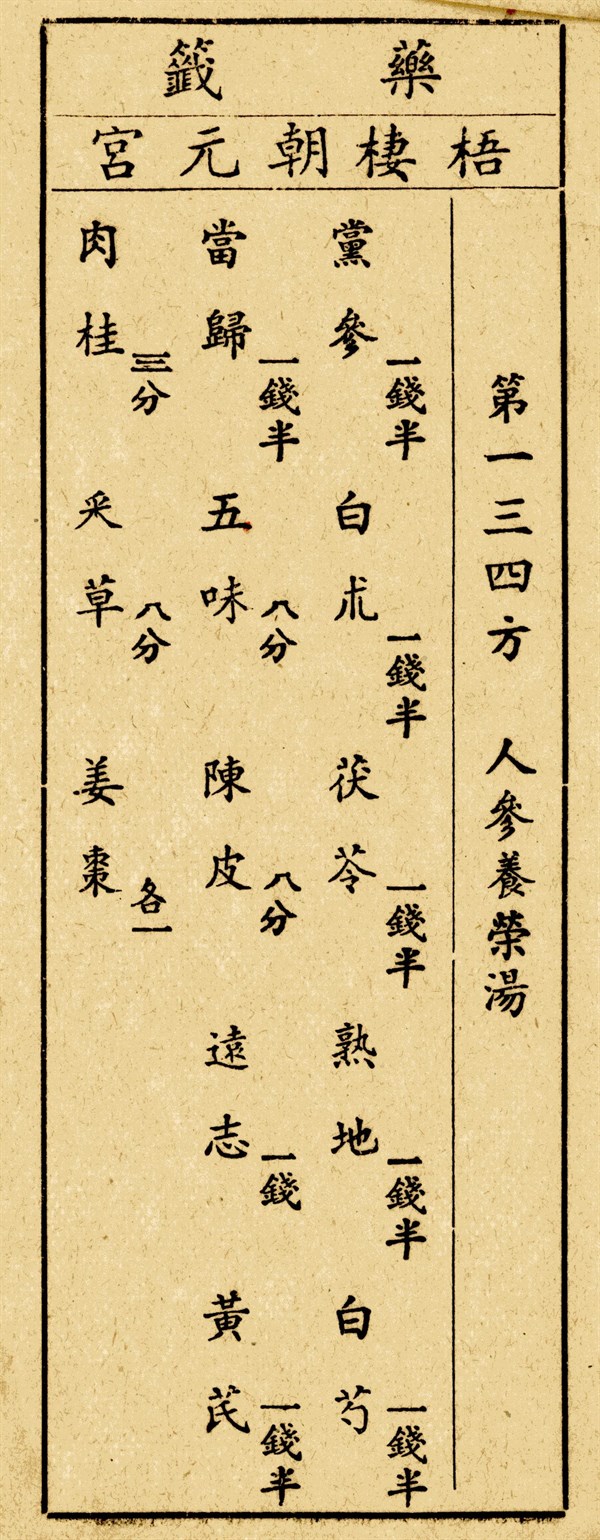 藥籤
梧棲朝元宮
第一三四方 人參養榮湯
黨參 一錢半 白朮 一錢半 茯苓 一錢半 熟地 一錢半 白芍 一錢半
當歸 一錢半 五味 八分 陳皮 八分 遠志 一錢 黃芪 一錢半
肉桂 三分 炙草 八分 姜棗 各一